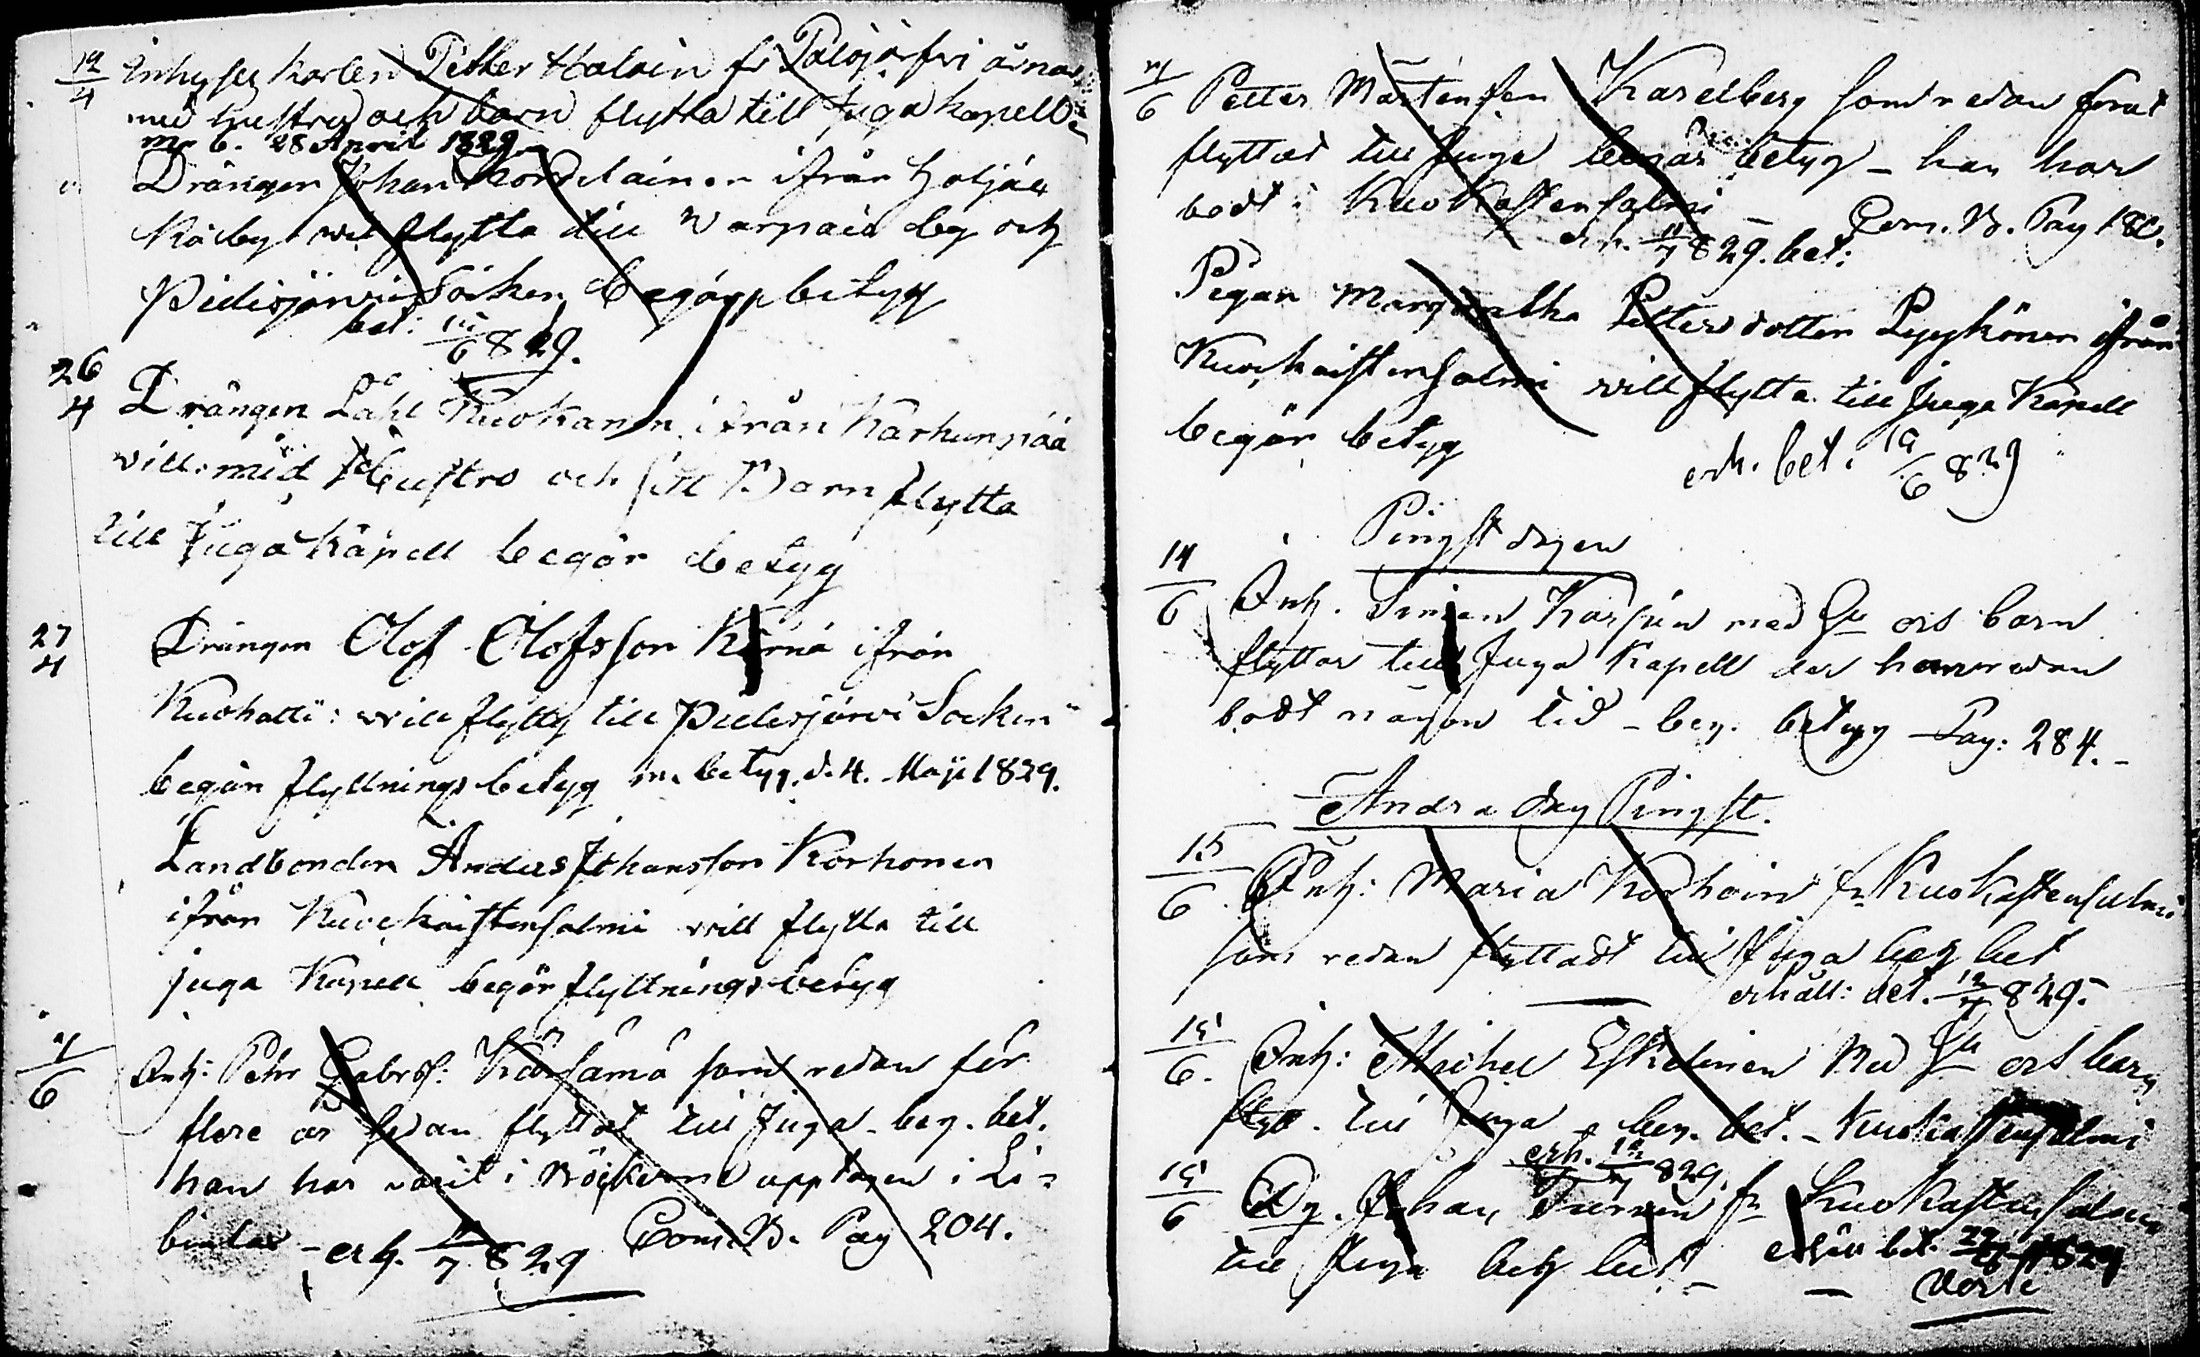 19/4 Inhyses Karlen Petter Halain fr Palojärfvi ärnar
med hustru och barn flytta till Juga kapell
m. b. 28 April 1829.
Drängen Johan Kordelainen ifrån Holjäx
Käby vil flytta till Warpais by och
Pielisjärvi Socken begär betyg
bet: 829.
26/4 Drängen Påhl Kuokanen ifrån Karhunpää
vill med Hustro och sitt Barn flytta
till Juga Kapell begär betyg
27/4 Drängen Olof Olofsson Kärnä ifrån
Kuohatti: will flytta till Pielisjärvi Socken
begär flyttnings betyg m. betyg. d. 4. Maji 1829.
Landbonden Anders Johansson Korhonen
ifrån Kuockaistensalmi will flytta till
juga Kapell begär flyttnings betyg
Inh: Pehr Gabrs: Kärsämä som redan för
flere år sedan flyttat till Juga - beg. bet.
han har varit i Nöijkerne upptagen i Li-
bintar - erh. 829 Com. B. Pag 204.
6 Petter Mårtensson Karelberg som redan förut
flyttat till Juga begär betyg - han har
bodt i Kuokastensalmi - Com. B. Pag 180.
erh. 829. bet:
Pigan Margaretha Pettersdotter Lyykönen ifrån
Kuockaistensalmi will flytta till Juga Kapell
begär betyg
erh. bet. 19/6 829
Pingst dagen
14/6 Inh. Simon Karhuin med hu och barn
flyttar till Juga Kapell der han redan
bodt någon tid - beg. betyg Pag: 284. -
Andra dag Pingst.
15/6 Inh: Maria Korhoin fr Kuokastensalmi
som redan flyttadt till Juga beg bet
erhåll: bet. 12/7 829.
15/6. Inh: Michel Eskelinen med hu och barn
flytt. till Juga - beg. bet. - Kuokastensalmi
erh. 829.
15/6 Dg. Johan Turunen fr Kuokastensalmi
till Juga beg bet - erhåll bet. 1829
Verte